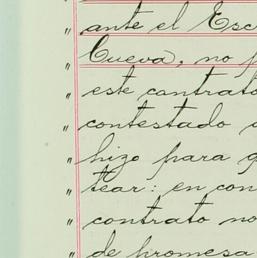 " ante el Esc
" Cueva, no p
" este contrato
" contestado
" hizo para q
" tear: en con
" contrato no
" de promesa